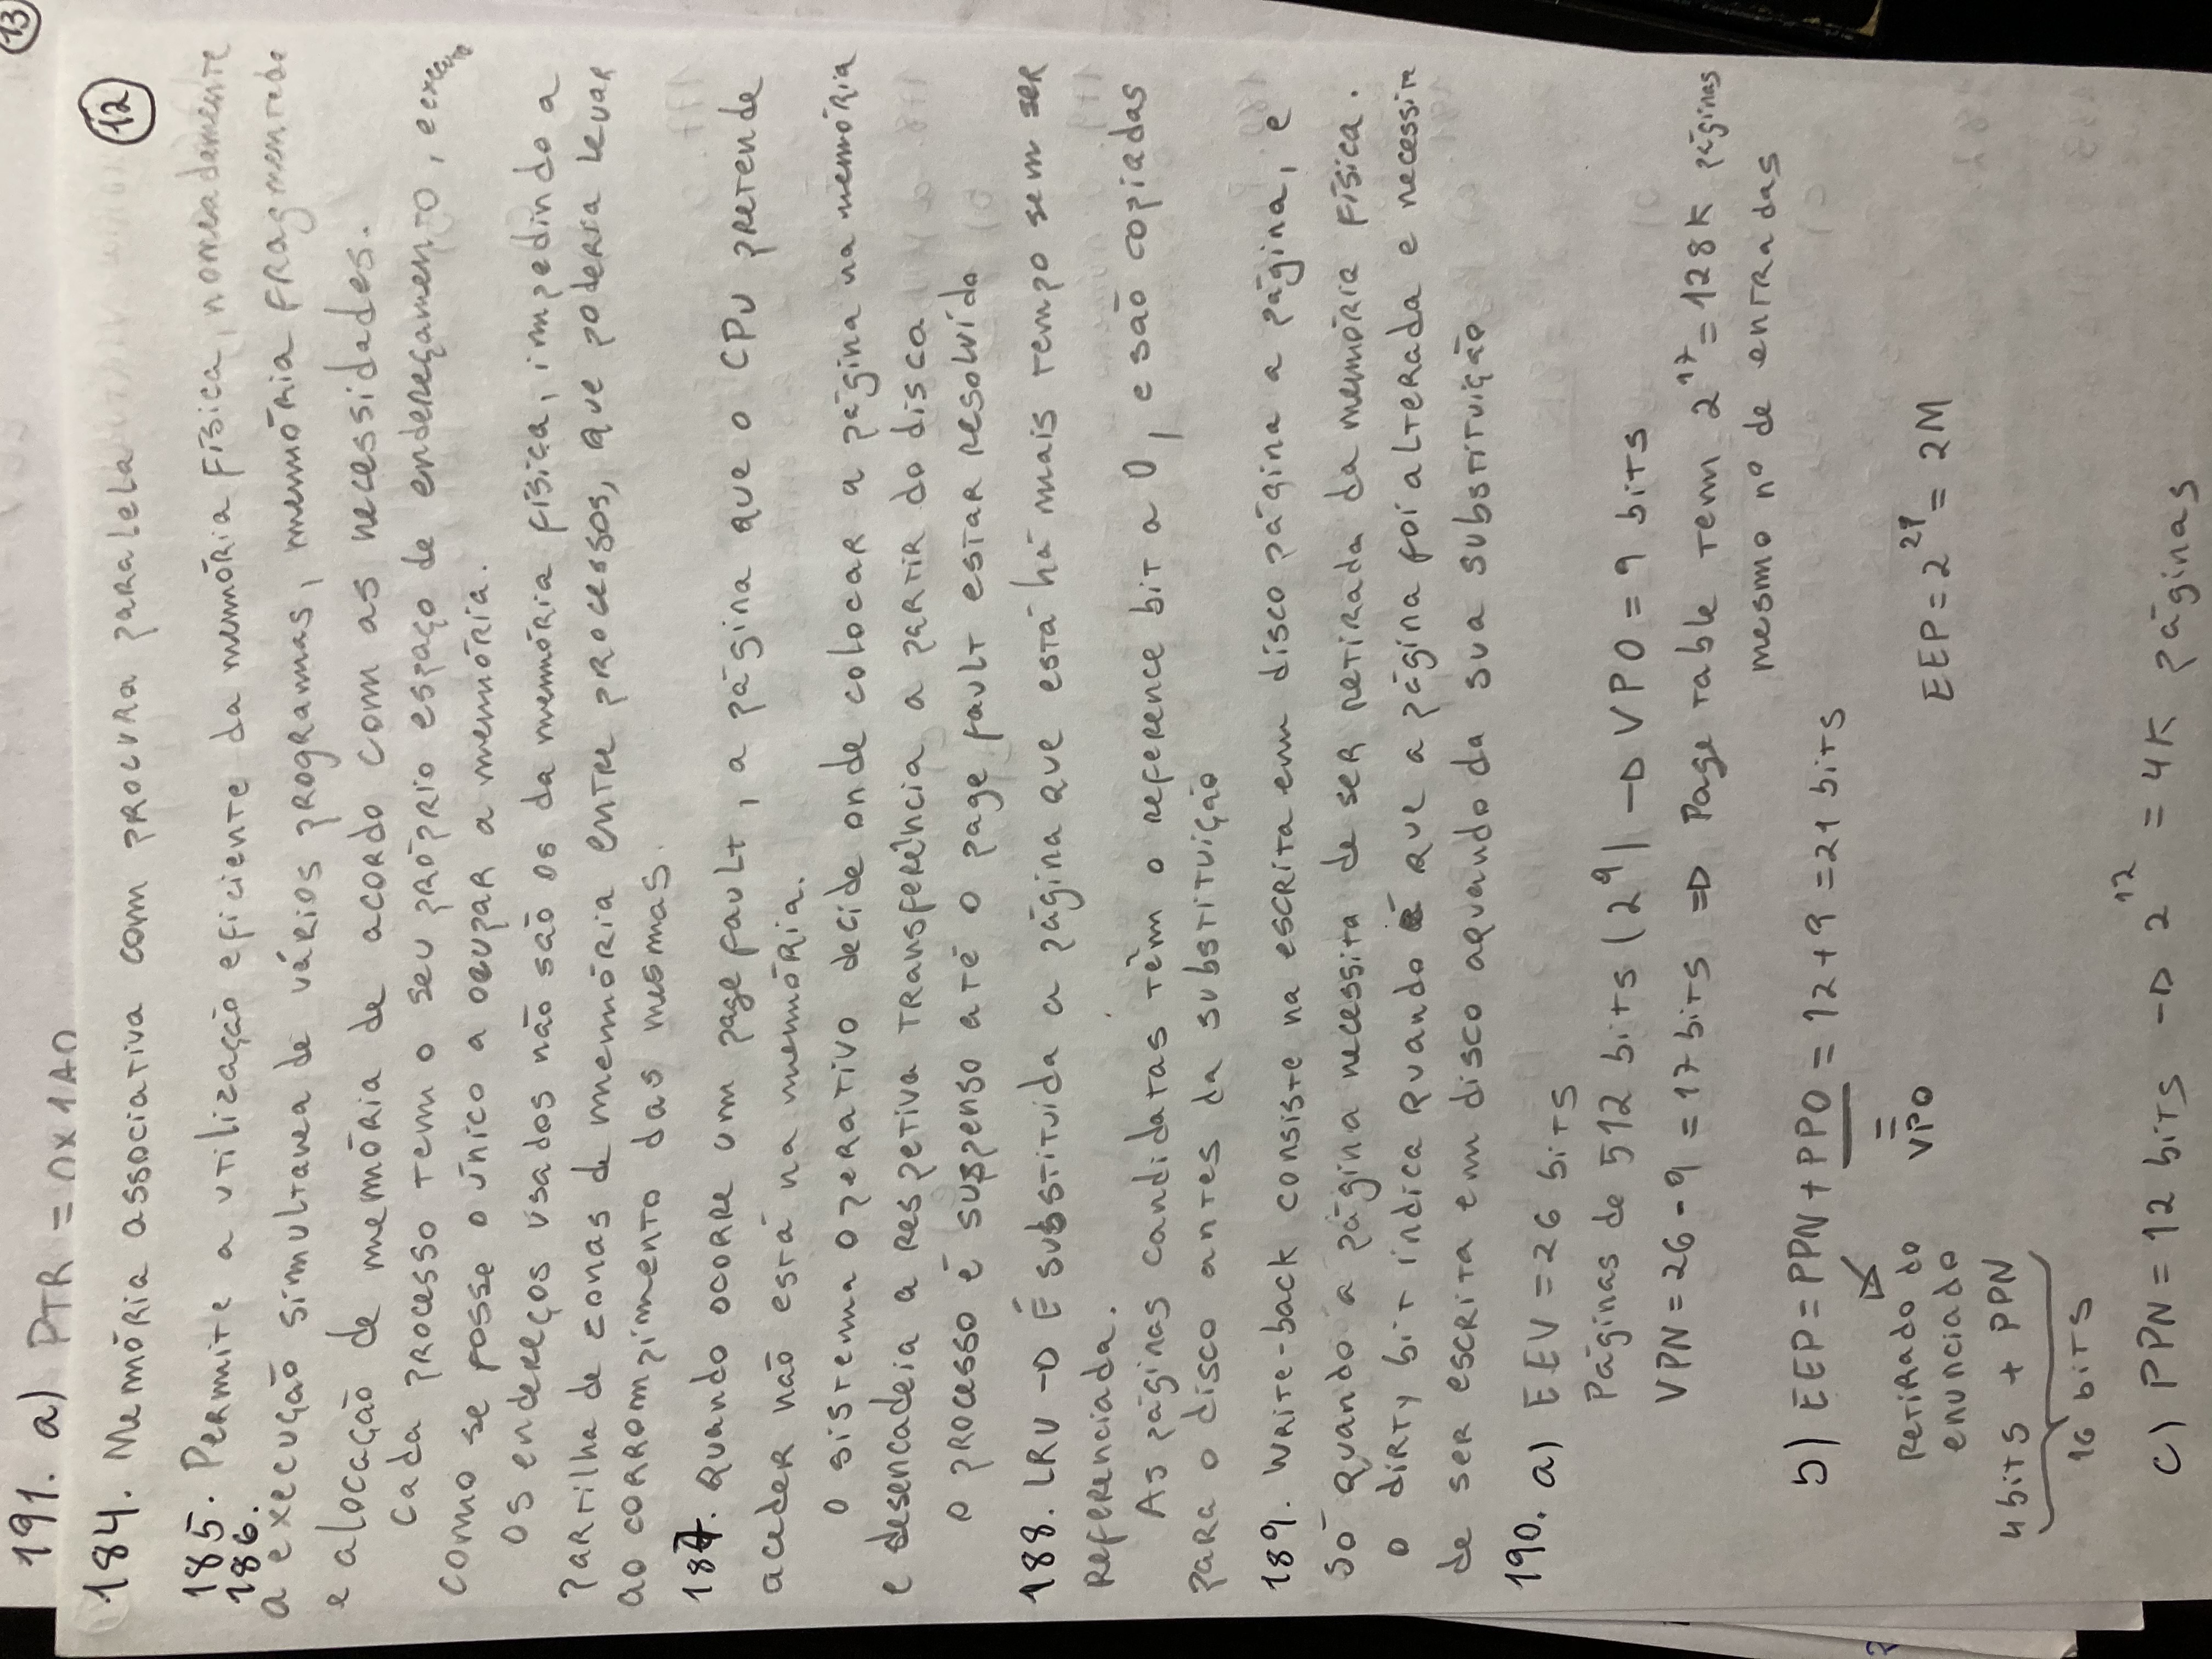 191. a) PTR = 0x1A0
13
184. Memória associativa com procura paralela
12
185. Permite a utilização eficiente da memória física, nomeadamente
186.
a execução simultanea de vários programas, memória fragmentada
e alocação de memória de acordo com as necessidades.
Cada processo tem o seu próprio espaço de endereçamento, e executa
como se fosse o único a ocupar a memória.
Os endereços usados não são os da memória física, impedindo a
partilha de zonas de memória entre processos, que poderia levar
ao corrompimento das mesmas.
187. Quando ocorre um page fault, a página que o CPU pretende
aceder não está na memória.
O sistema operativo decide onde colocar a página na memória
e desencadeia a respetiva transferência a partir do disco
O processo é suspenso até o page fault estar resolvido
188. LRU → É substituida a página que está há mais tempo sem ser
referenciada.
As páginas candidatas têm o reference bit a 0, e são copiadas
para o disco antes da substituição
189. Write-back consiste na escrita em disco página a página, e
só quando a página necessita de ser retirada da memória física.
O dirty bit indica quando é que a página foi alterada e necessita
de ser escrita em disco aquando da sua substituição
190. a) EEV = 26 bits
Páginas de 512 bits (2^9) → VPO = 9 bits
VPN = 26 - 9 = 17 bits ⇒ Page table tem 2^17 = 128K páginas
mesmo nº de entradas
b) EEP = PPN + PPO = 12 + 9 = 21 bits
retirado do
=
enunciado
VPO
EEP = 2^21 = 2M
4 bits + PPN
16 bits
c) PPN = 12 bits → 2^12 = 4K páginas